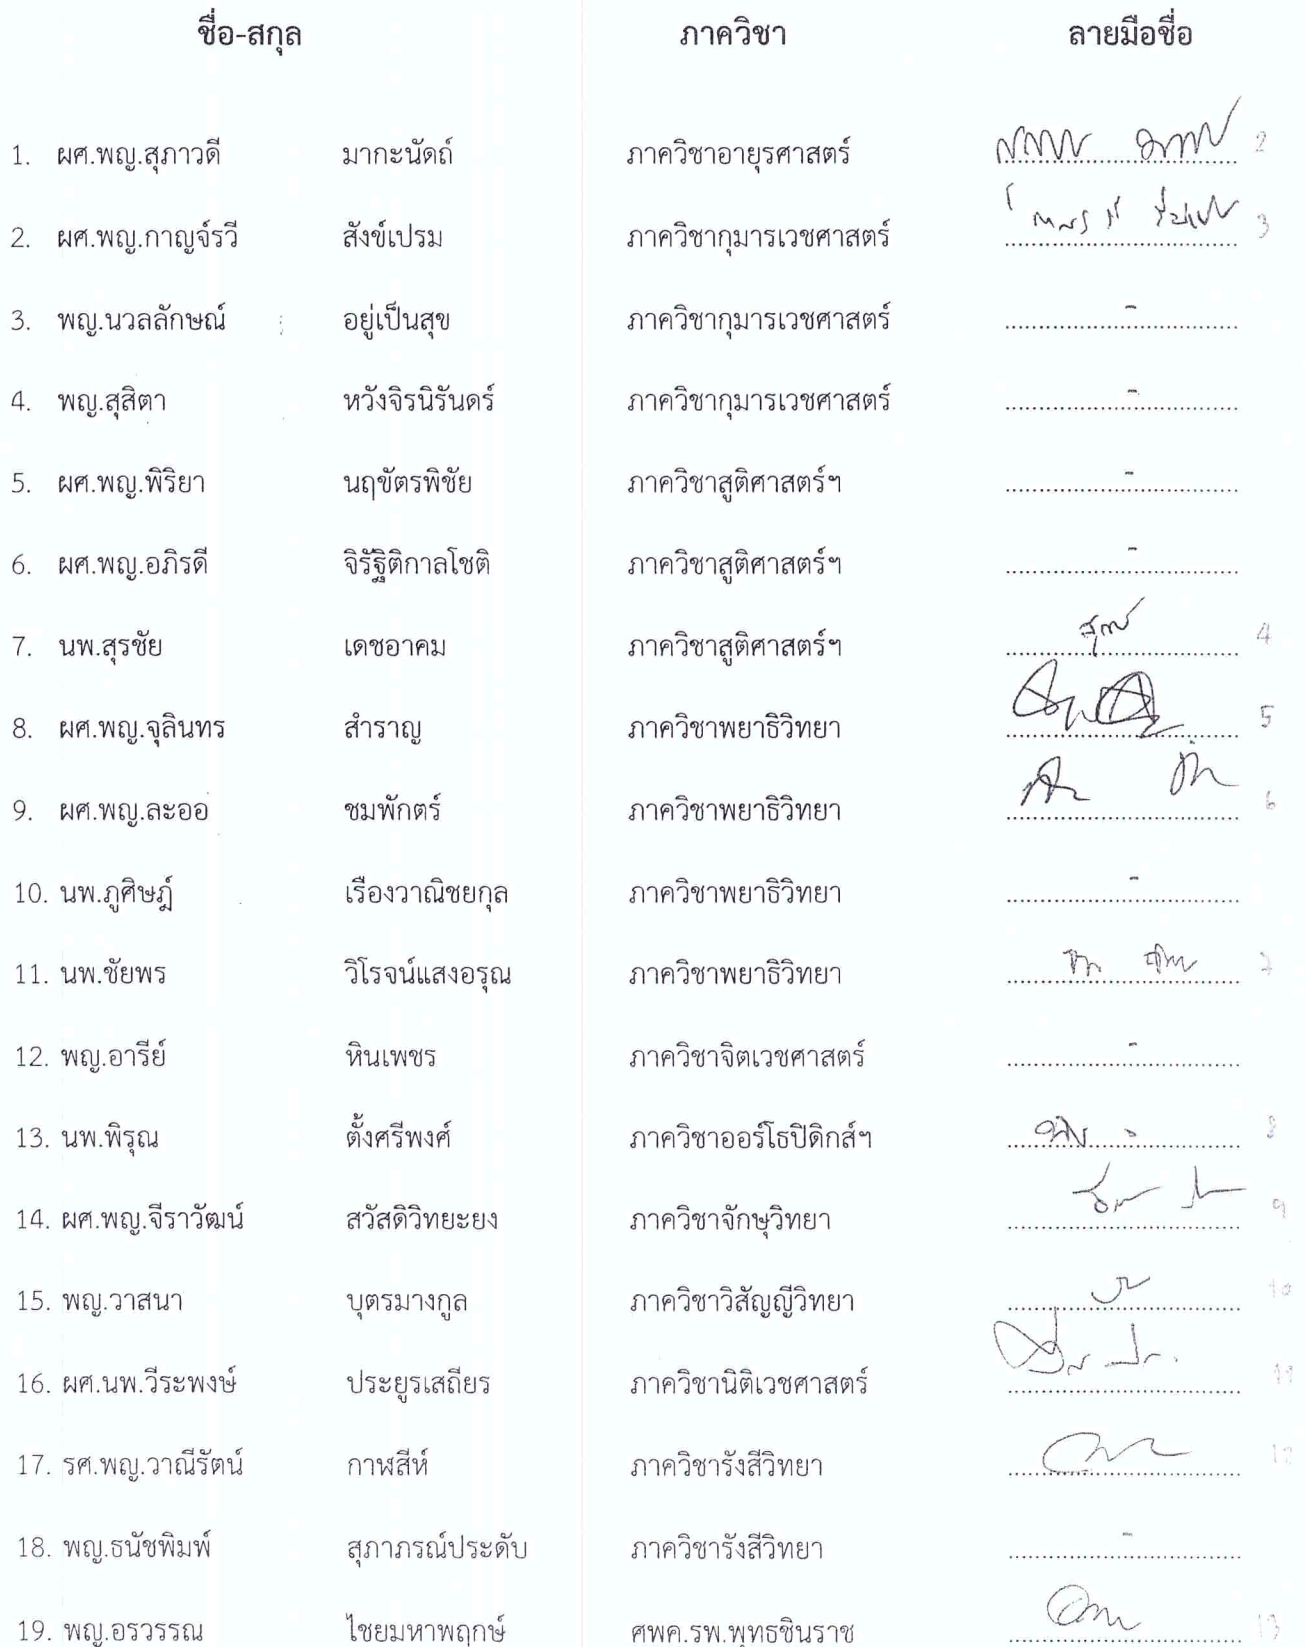 ชื่อ-สกุล ภาควิชา ลายมือชื่อ
1. ผศ.พญ.สุภาวดี มากะนัดถ์ ภาควิชาอายุรศาสตร์ 2
2. ผศ.พญ.กาญจ์รวี สังข์เปรม ภาควิชากุมารเวชศาสตร์ 3
3. พญ.นวลลักษณ์ อยู่เป็นสุข ภาควิชากุมารเวชศาสตร์ -
4. พญ.สุสิตา หวังจิรนิรันดร์ ภาควิชากุมารเวชศาสตร์ -
5. ผศ.พญ.พิริยา นฤขัตรพิชัย ภาควิชาสูติศาสตร์ฯ -
6. ผศ.พญ.อภิรดี จิรัฐิติกาลโชติ ภาควิชาสูติศาสตร์ฯ -
7. นพ.สุรชัย เดชอาคม ภาควิชาสูติศาสตร์ฯ 4
8. ผศ.พญ.จุลินทร สำราญ ภาควิชาพยาธิวิทยา 5
9. ผศ.พญ.ละออ ชมพักตร์ ภาควิชาพยาธิวิทยา 6
10. นพ.ภูศิษฎ์ เรืองวาณิชยกุล ภาควิชาพยาธิวิทยา -
11. นพ.ชัยพร วิโรจน์แสงอรุณ ภาควิชาพยาธิวิทยา 7
12. พญ.อารีย์ หินเพชร ภาควิชาจิตเวชศาสตร์ -
13. นพ.พิรุณ ตั้งศรีพงศ์ ภาควิชาออร์โธปิดิกส์ฯ 8
14. ผศ.พญ.จีราวัฒน์ สวัสดิวิทยะยง ภาควิชาจักษุวิทยา 9
15. พญ.วาสนา บุตรมางกูล ภาควิชาวิสัญญีวิทยา 10
16. ผศ.นพ.วีระพงษ์ ประยูรเสถียร ภาควิชานิติเวชศาสตร์ 11
17. รศ.พญ.วาณีรัตน์ กาฬสีห์ ภาควิชารังสีวิทยา 12
18. พญ.ธนัชพิมพ์ สุภาภรณ์ประดับ ภาควิชารังสีวิทยา -
19. พญ.อรวรรณ ไชยมหาพฤกษ์ ศพค.รพ.พุทธชินราช 13